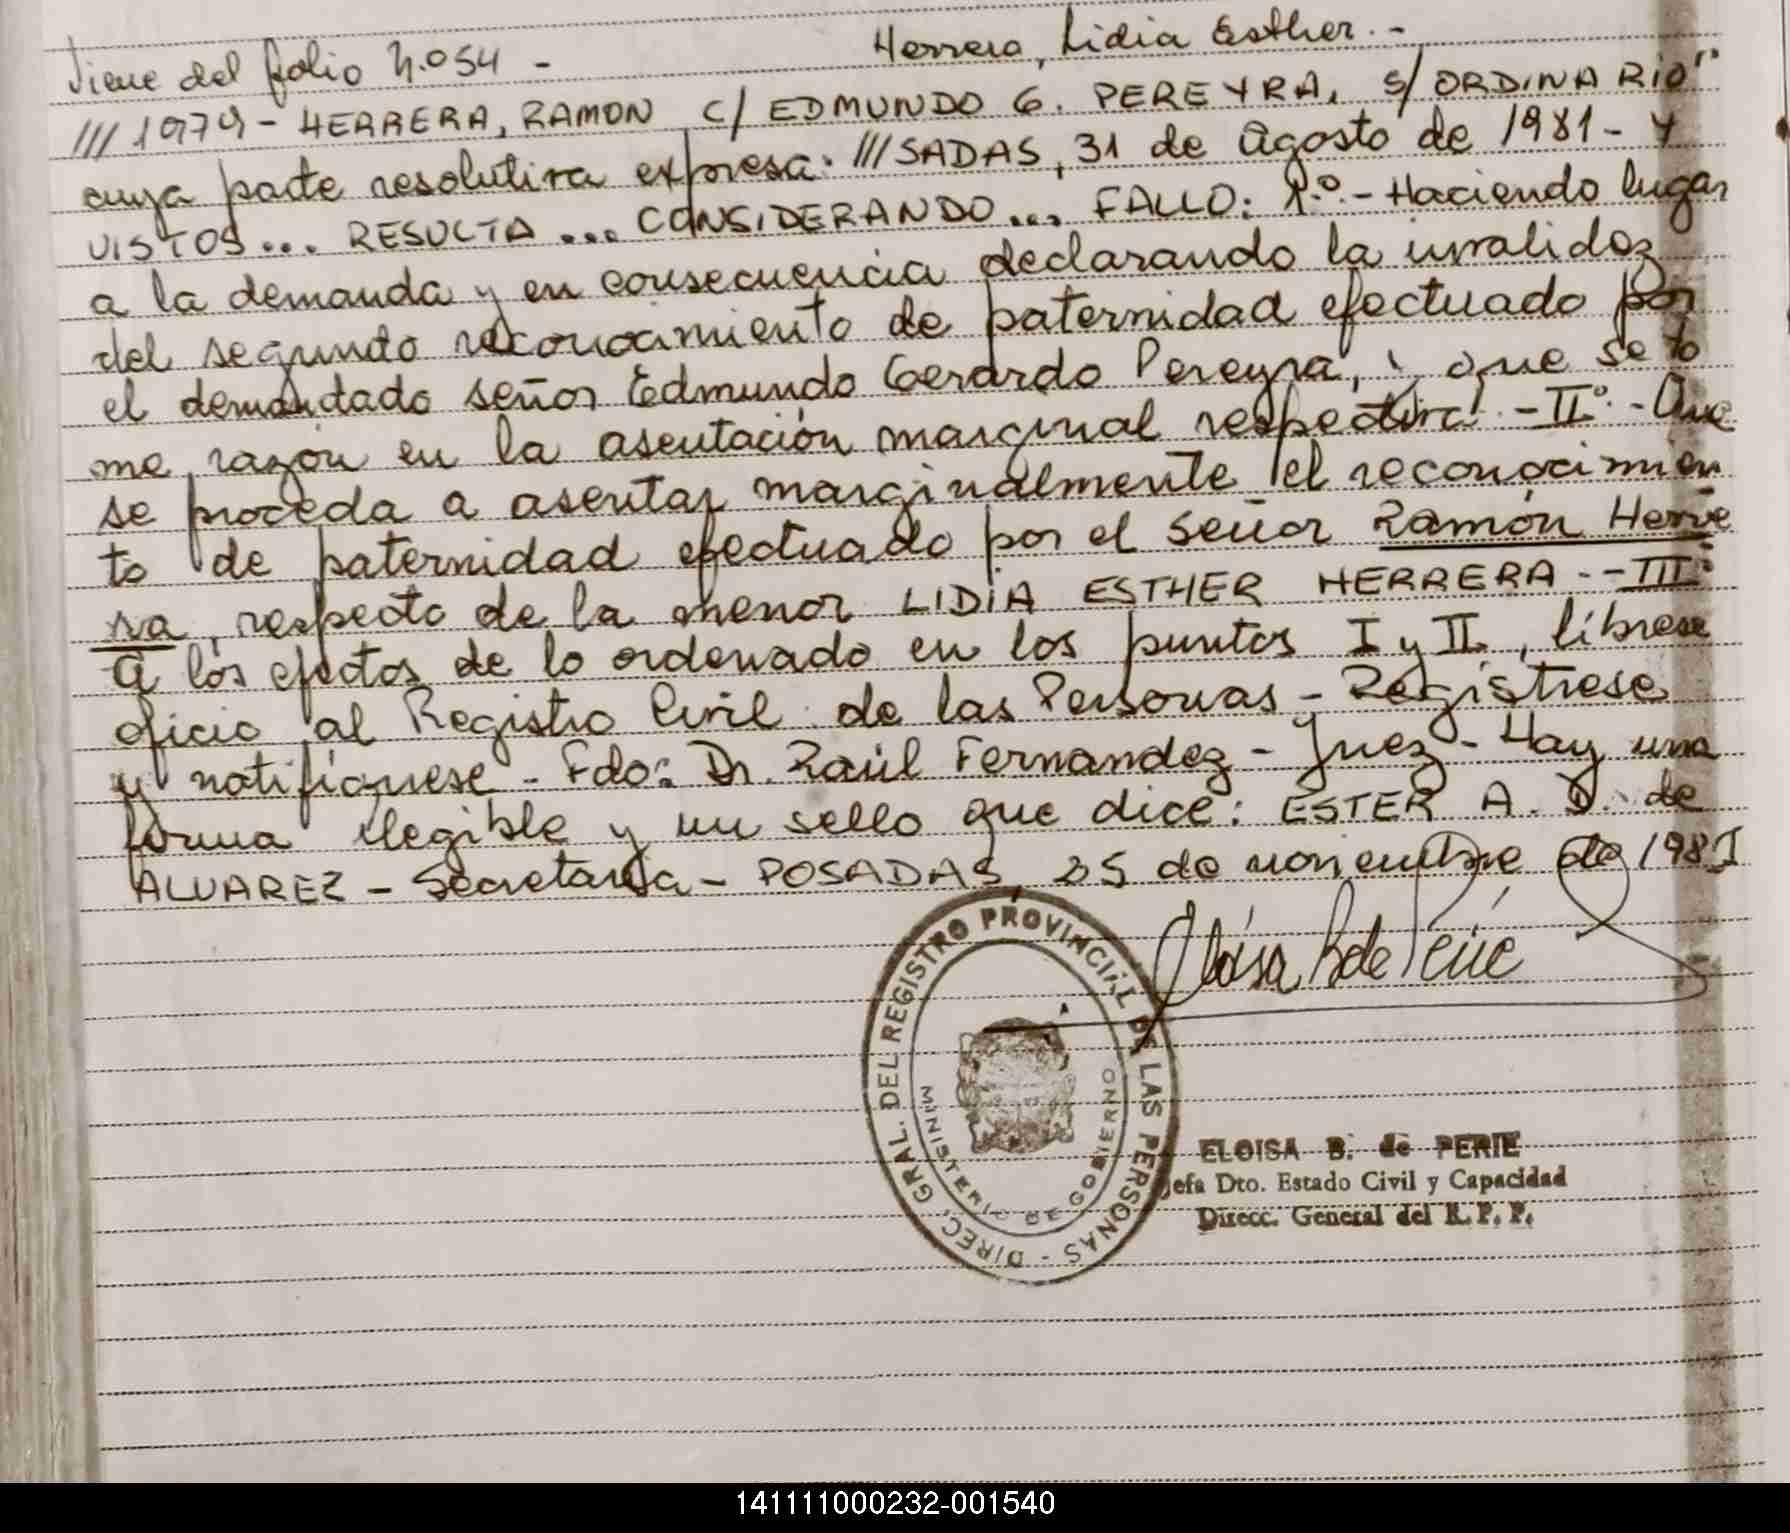 Viene del folio N.º 54 -
Herrera, Lidia Esther. -
///1979 - HERRERA, RAMON C/ EDMUNDO G. PEREYRA, S/ ORDINARIO"
cuya parte resolutiva expresa: ///SADAS, 31 de Agosto de 1981 - Y
VISTOS... RESULTA... CONSIDERANDO... FALLO: 1.º - Haciendo lugar
a la demanda y en consecuencia declarando la invalidez
del segundo reconocimiento de paternidad efectuado por
el demandado señor Edmundo Gerardo Pereyra, y que se to
me razón en la asentación marginal respectiva. - IIº. - Que
se proceda a asentar marginalmente el reconocimien
to de paternidad efectuado por el señor Ramón Herre
ra, respecto de la menor LIDIA ESTHER HERRERA. - IIIº
A los efectos de lo ordenado en los puntos I y II, líbrese
oficio al Registro Civil de las Personas - Regístrese
y notifíquese - Fdo: Dr. Raúl Fernandez - Juez - Hay una
firma ilegible y un sello que dice: ESTER A. D. de
ALVAREZ - Secretaria - POSADAS, 25 de noviembre de 1981
Eloisa B de Perie
DIREC. GRAL. DEL REGISTRO PROVINCIAL DE LAS PERSONAS -
MINISTERIO DE GOBIERNO
ELOISA B. de PERIE
Jefa Dto. Estado Civil y Capacidad
Direcc. General del R. P. P.
141111000232-001540